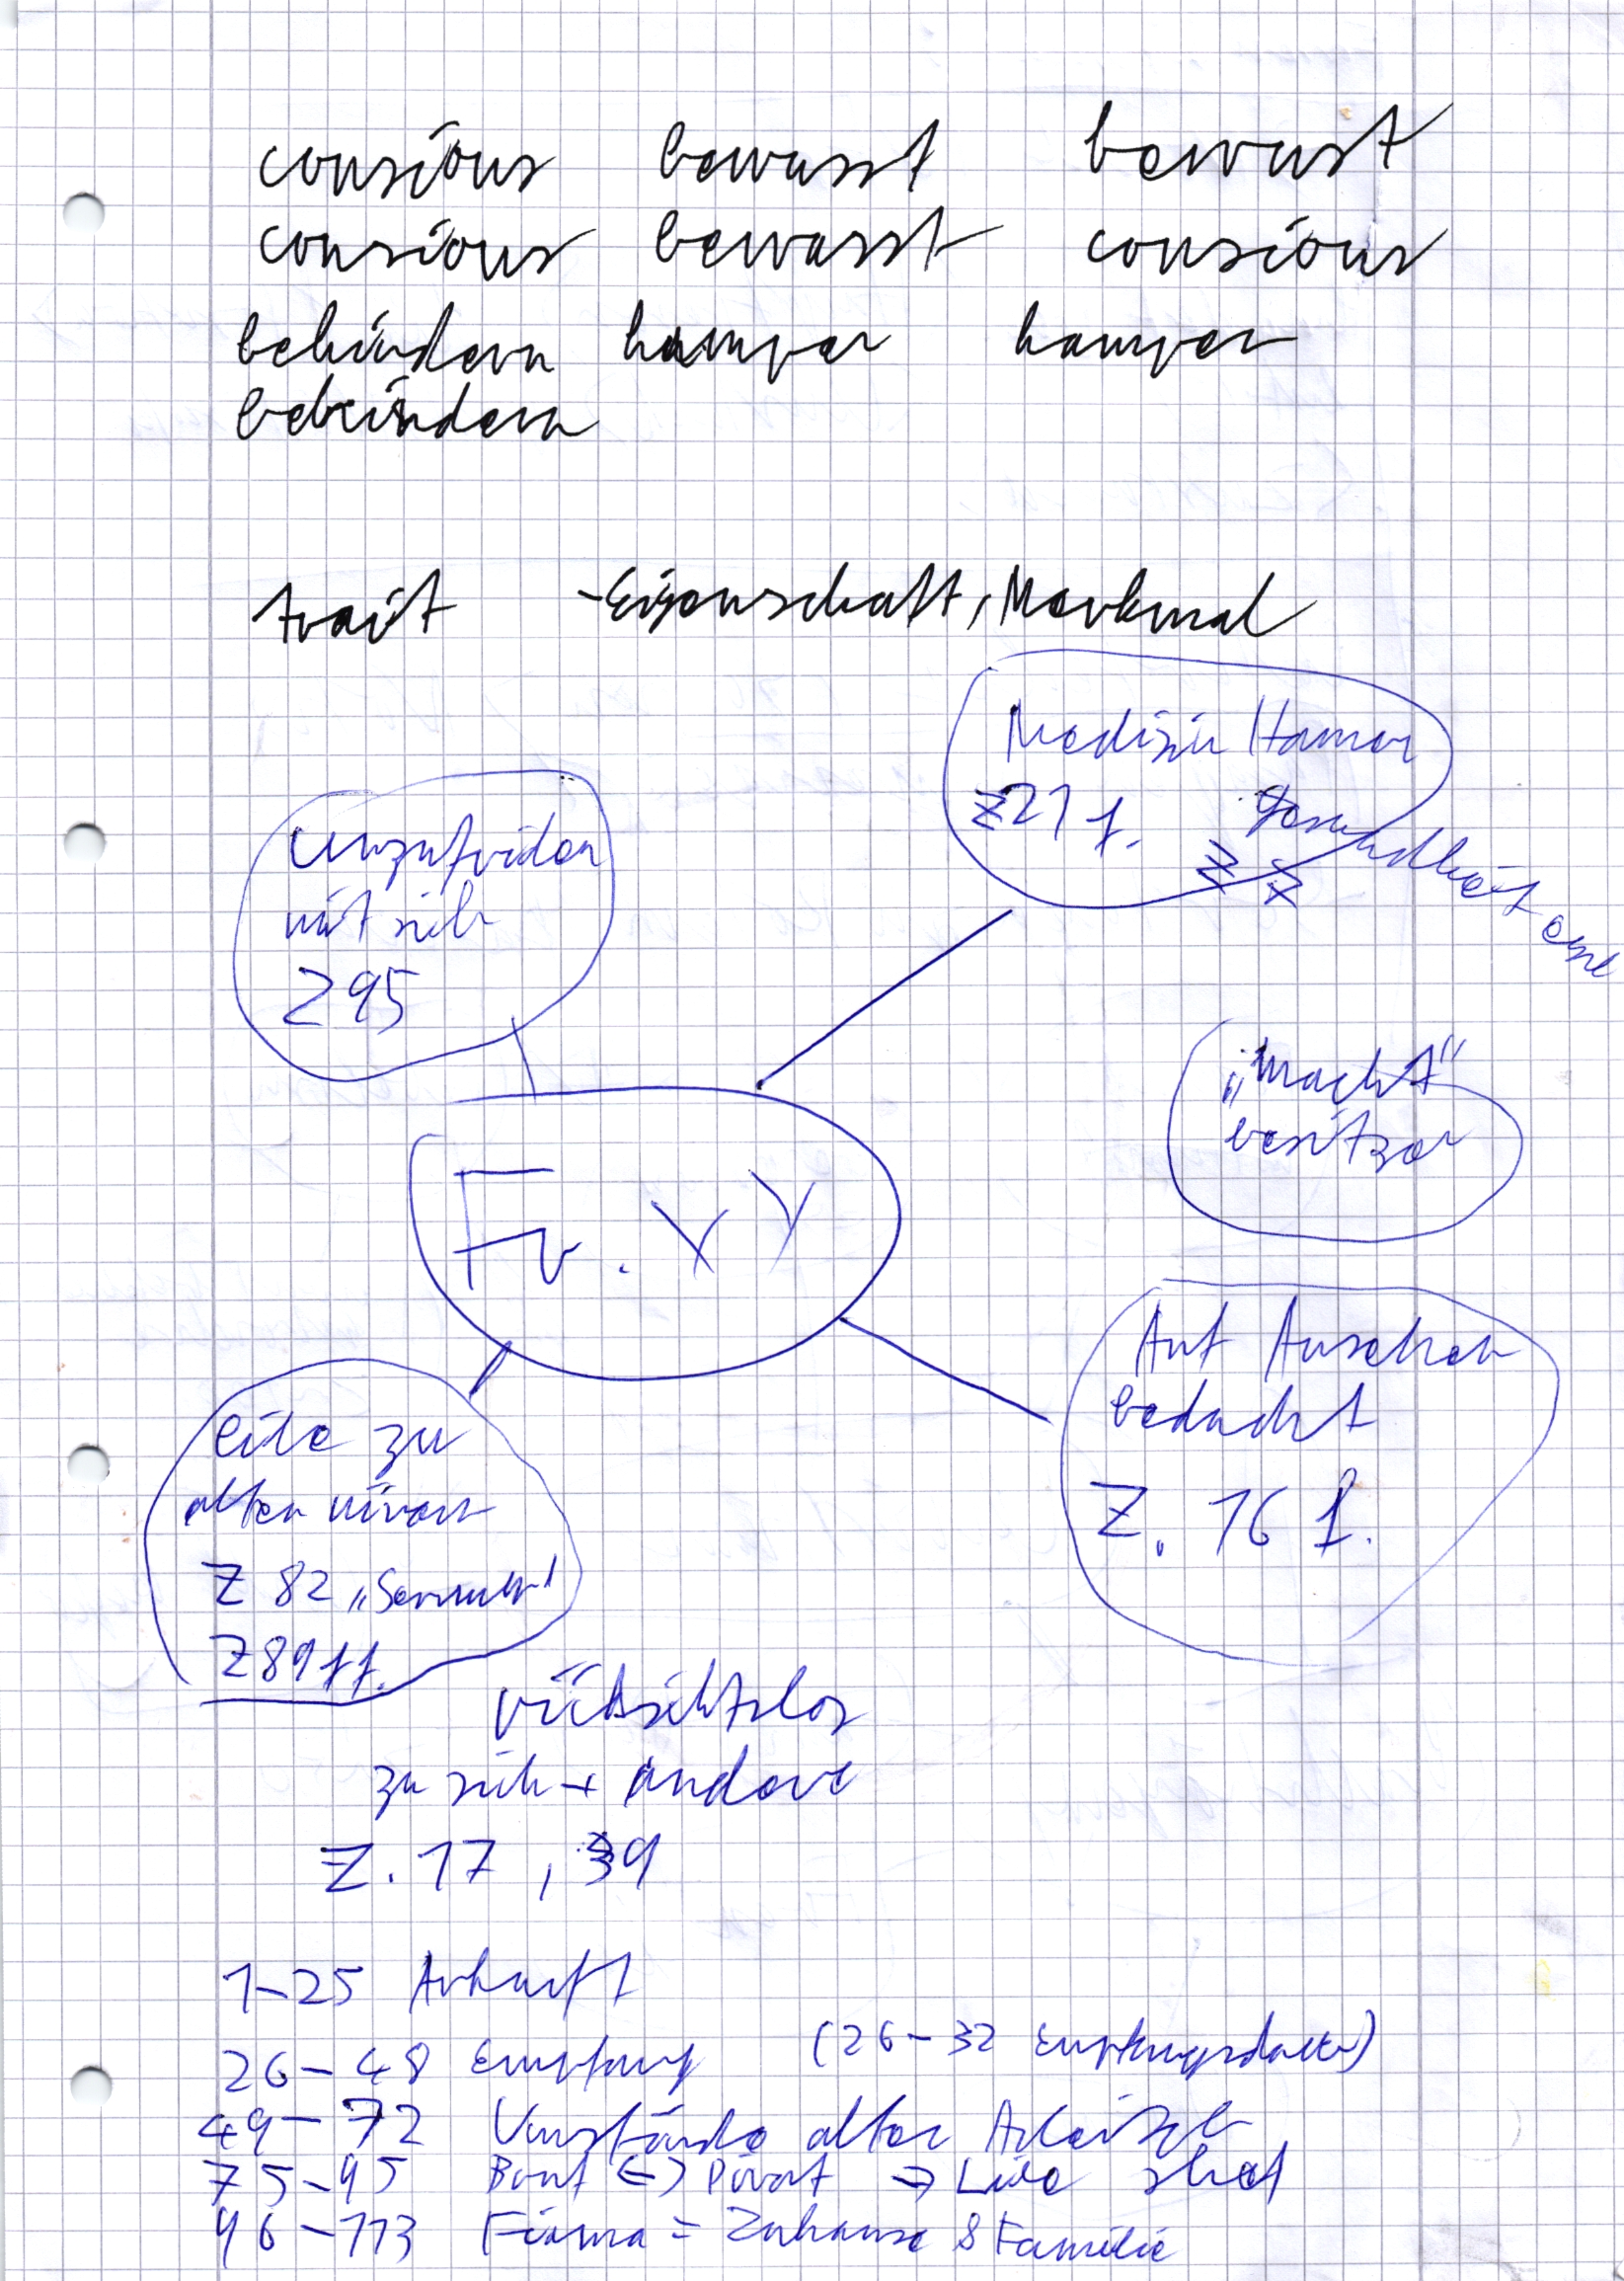 consious bewusst bewust
consious bewusst consious
behindern hamper hamper
behindern
trait - Eigenschaft, Merkmal
Medizin Humor
Z21 f.
Gesundheit
Unzufriden
mit sich
Z 95
„Macht"
besitzer
Fr. XY
Auf Ausehen
bedacht
Z. 16 f.
zu
alten
Z 82
Z89 ff.
rücksichtslos
zu sich + andere
Z. 17, 39
1-25 Ankunft
26-48 Empfang (26-32 Empfangsdame)
49-72 Umstände alter
75-95 Beruf <-> Privat =>
96-113 Firma = Zuhause & Familie